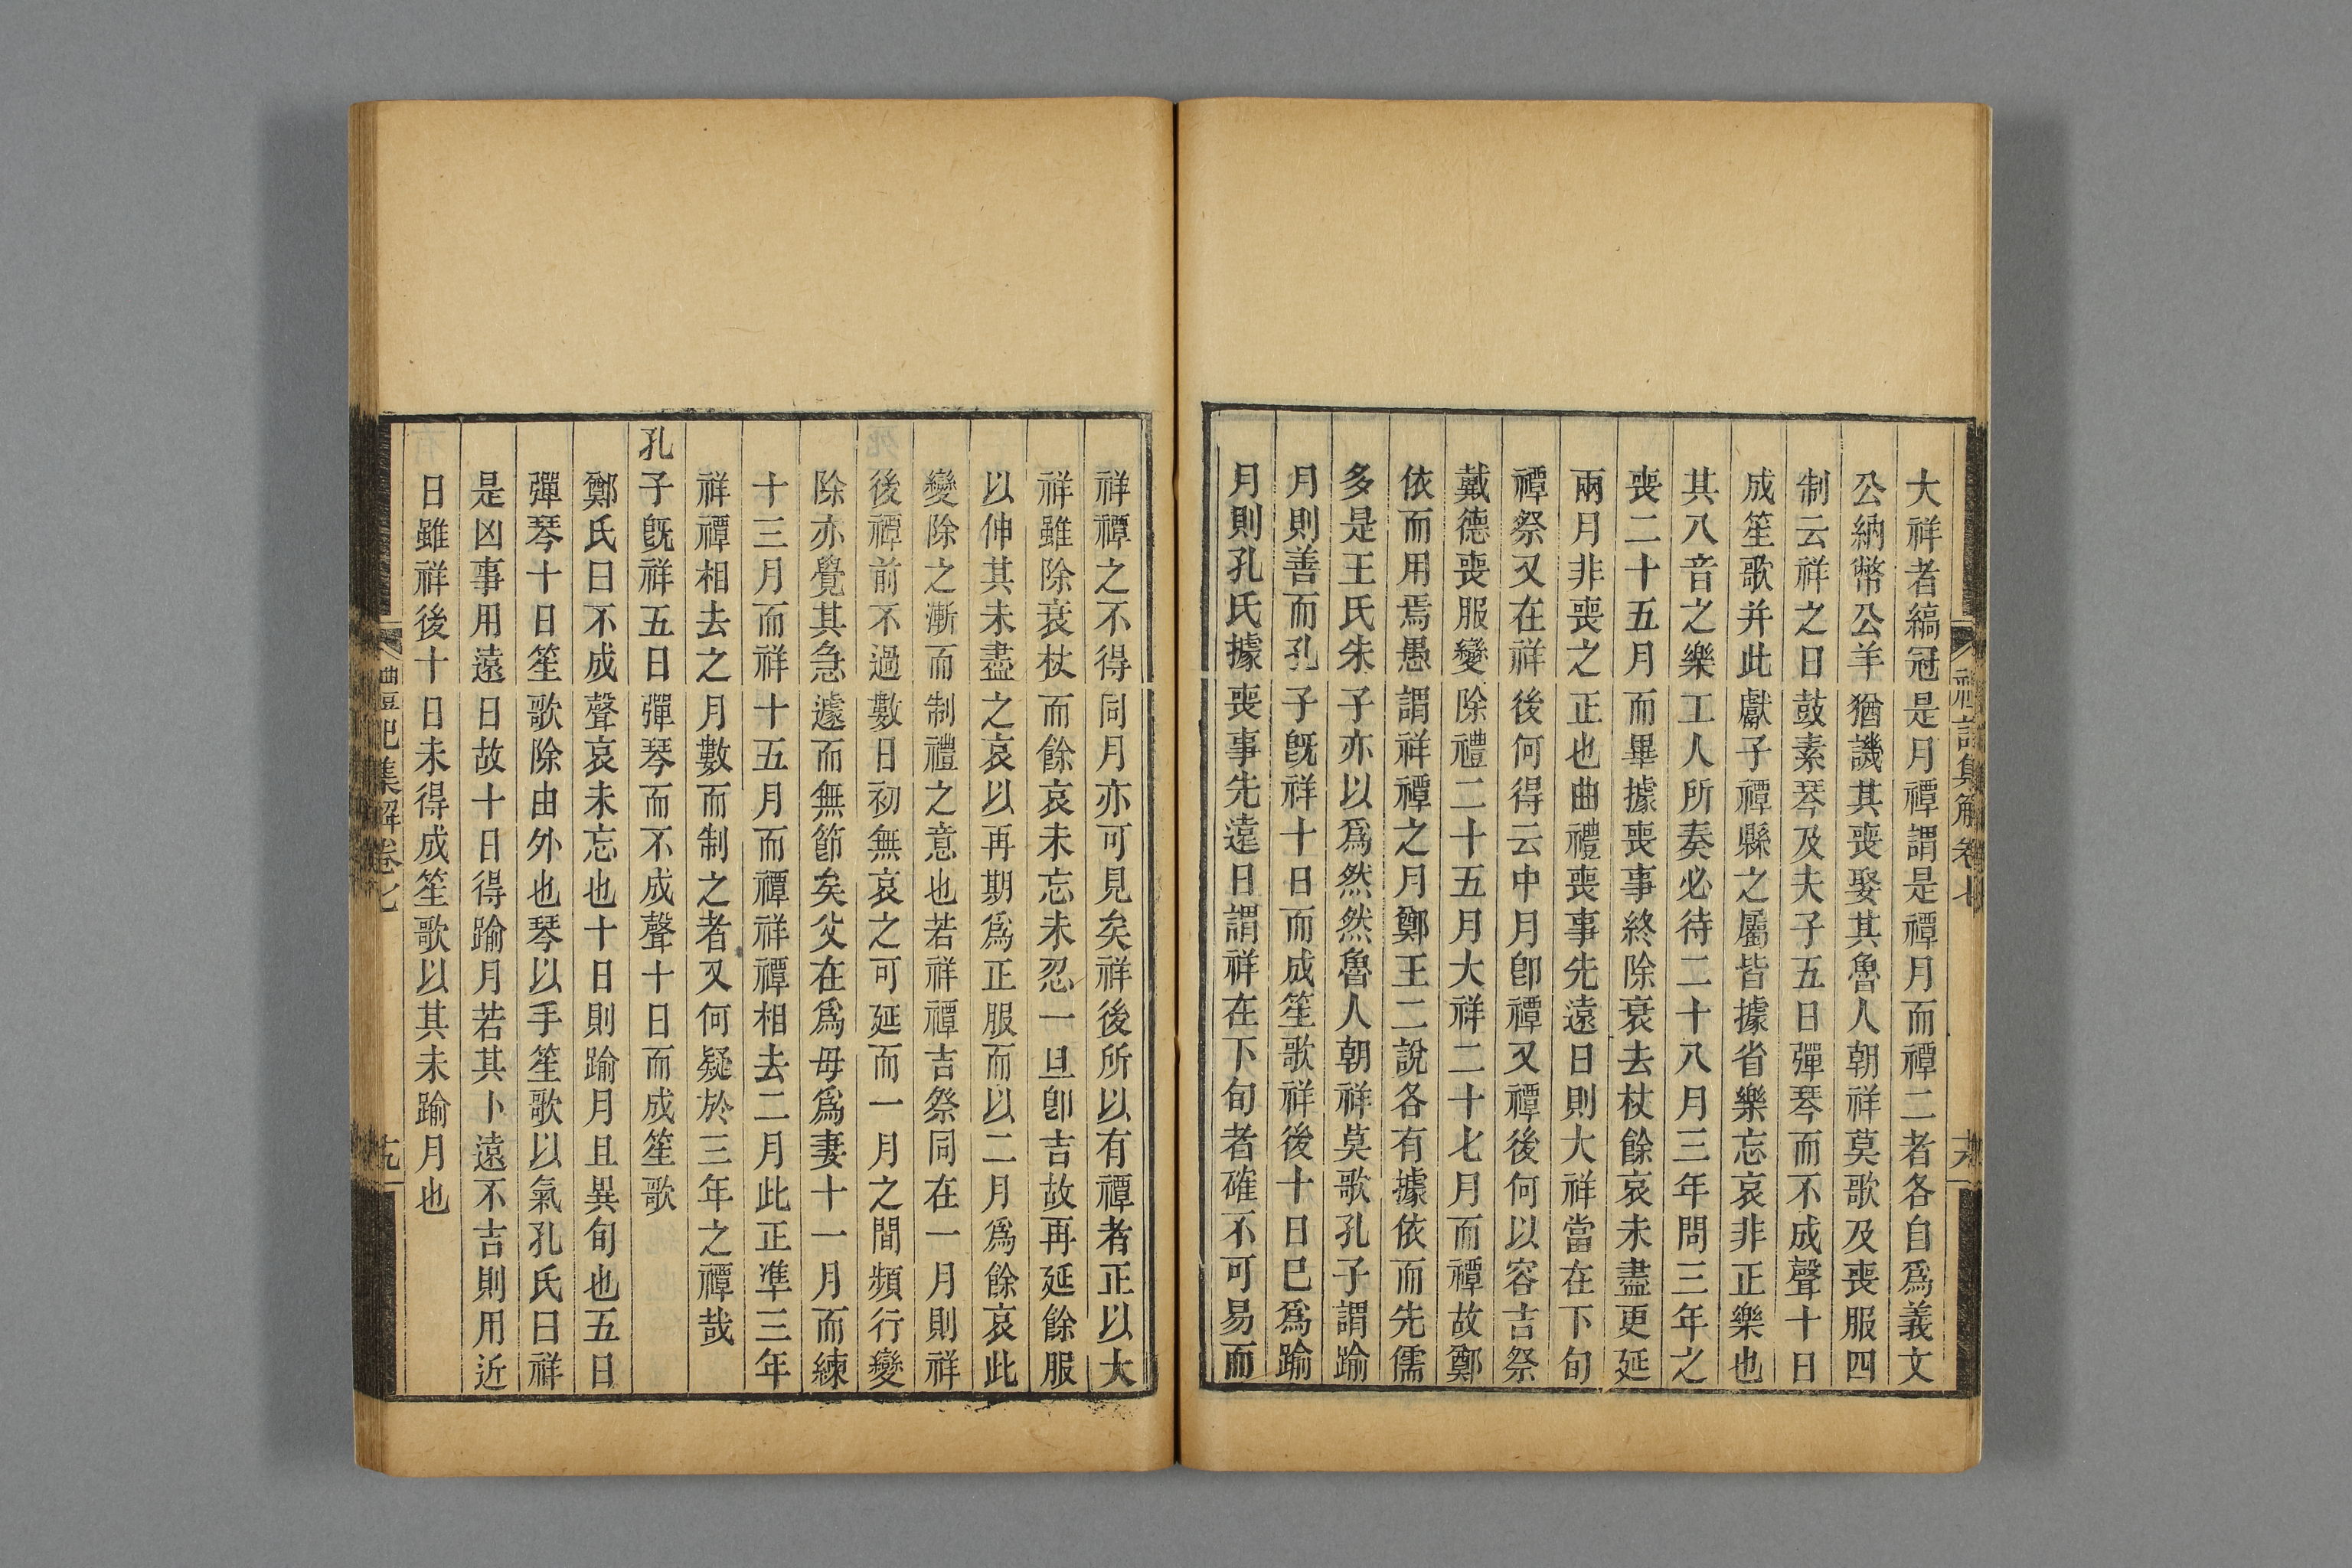 大祥者縞冠是月禫謂是禫月而禫二者各自爲義文
公納幣公羊猶譏其喪娶其魯人朝祥莫歌及喪服四
制云祥之日鼓素琴及夫子五日彈琴而不成聲十日
成笙歌并此獻子禫縣之屬皆據省樂忘哀非正樂也
其八音之樂工人所奏必待二十八月三年問三年之
喪二十五月而畢據喪事終除衰去杖餘哀未盡更延
兩月非喪之正也曲禮喪事先遠日則大祥當在下旬
禫祭又在祥後何得云中月卽禫又禫後何以容吉祭
戴德喪服變除禮二十五月大祥二十七月而禫故鄭
依而用焉愚謂祥禫之月鄭王二說各有據依而先儒
多是王氏朱子亦以爲然然魯人朝祥莫歌孔子謂踰
月則善而孔子旣祥十日而成笙歌祥後十日已爲踰
月則孔氏據喪事先遠日謂祥在下旬者確不可易而
禮記集解卷七
祥禫之不得同月亦可見矣祥後所以有禫者正以大
祥雖除衰杖而餘哀未忘未忍一旦卽吉故再延餘服
以伸其未盡之哀以再期爲正服而以二月爲餘哀此
變除之漸而制禮之意也若祥禫吉祭同在一月則祥
後禫前不過數日初無哀之可延而一月之間頻行變
除亦覺其急遽而無節矣父在爲母爲妻十一月而練
十三月而祥十五月而禫祥禫相去二月此正準三年
祥禫相去之月數而制之者又何疑於三年之禫哉
孔子旣祥五日彈琴而不成聲十日而成笙歌
鄭氏曰不成聲哀未忘也十日則踰月且異旬也五日
彈琴十日笙歌除由外也琴以手笙歌以氣孔氏曰祥
是凶事用遠日故十日得踰月若其卜遠不吉則用近
日雖祥後十日未得成笙歌以其未踰月也
禮記集解卷七